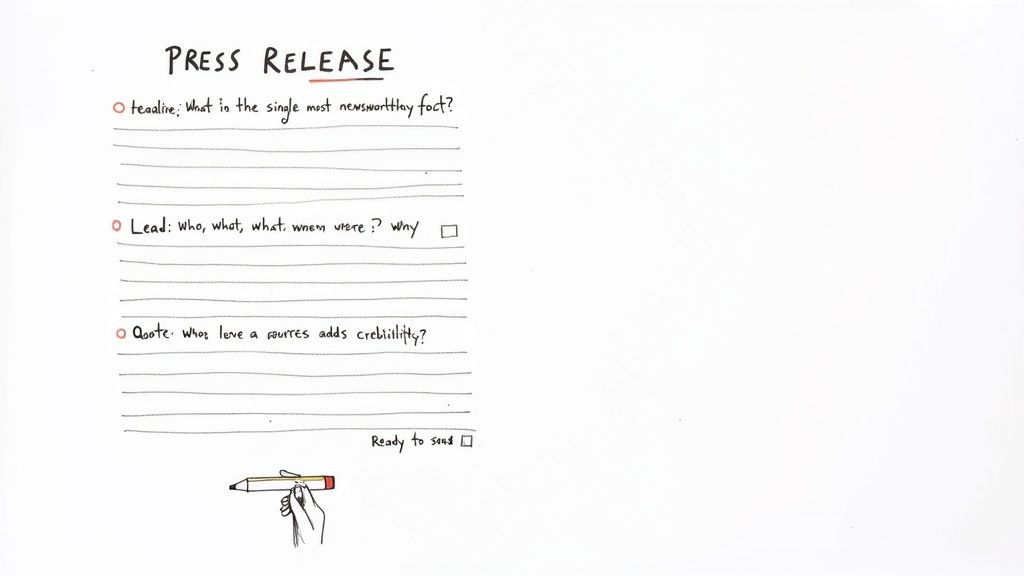 PRESS RELEASE
teadlire; What in the single most newsworttlay foct?
Lead: who, what, what. wnem wiere ? why
Qoote. whoz leve a adds crebiility?
Ready to